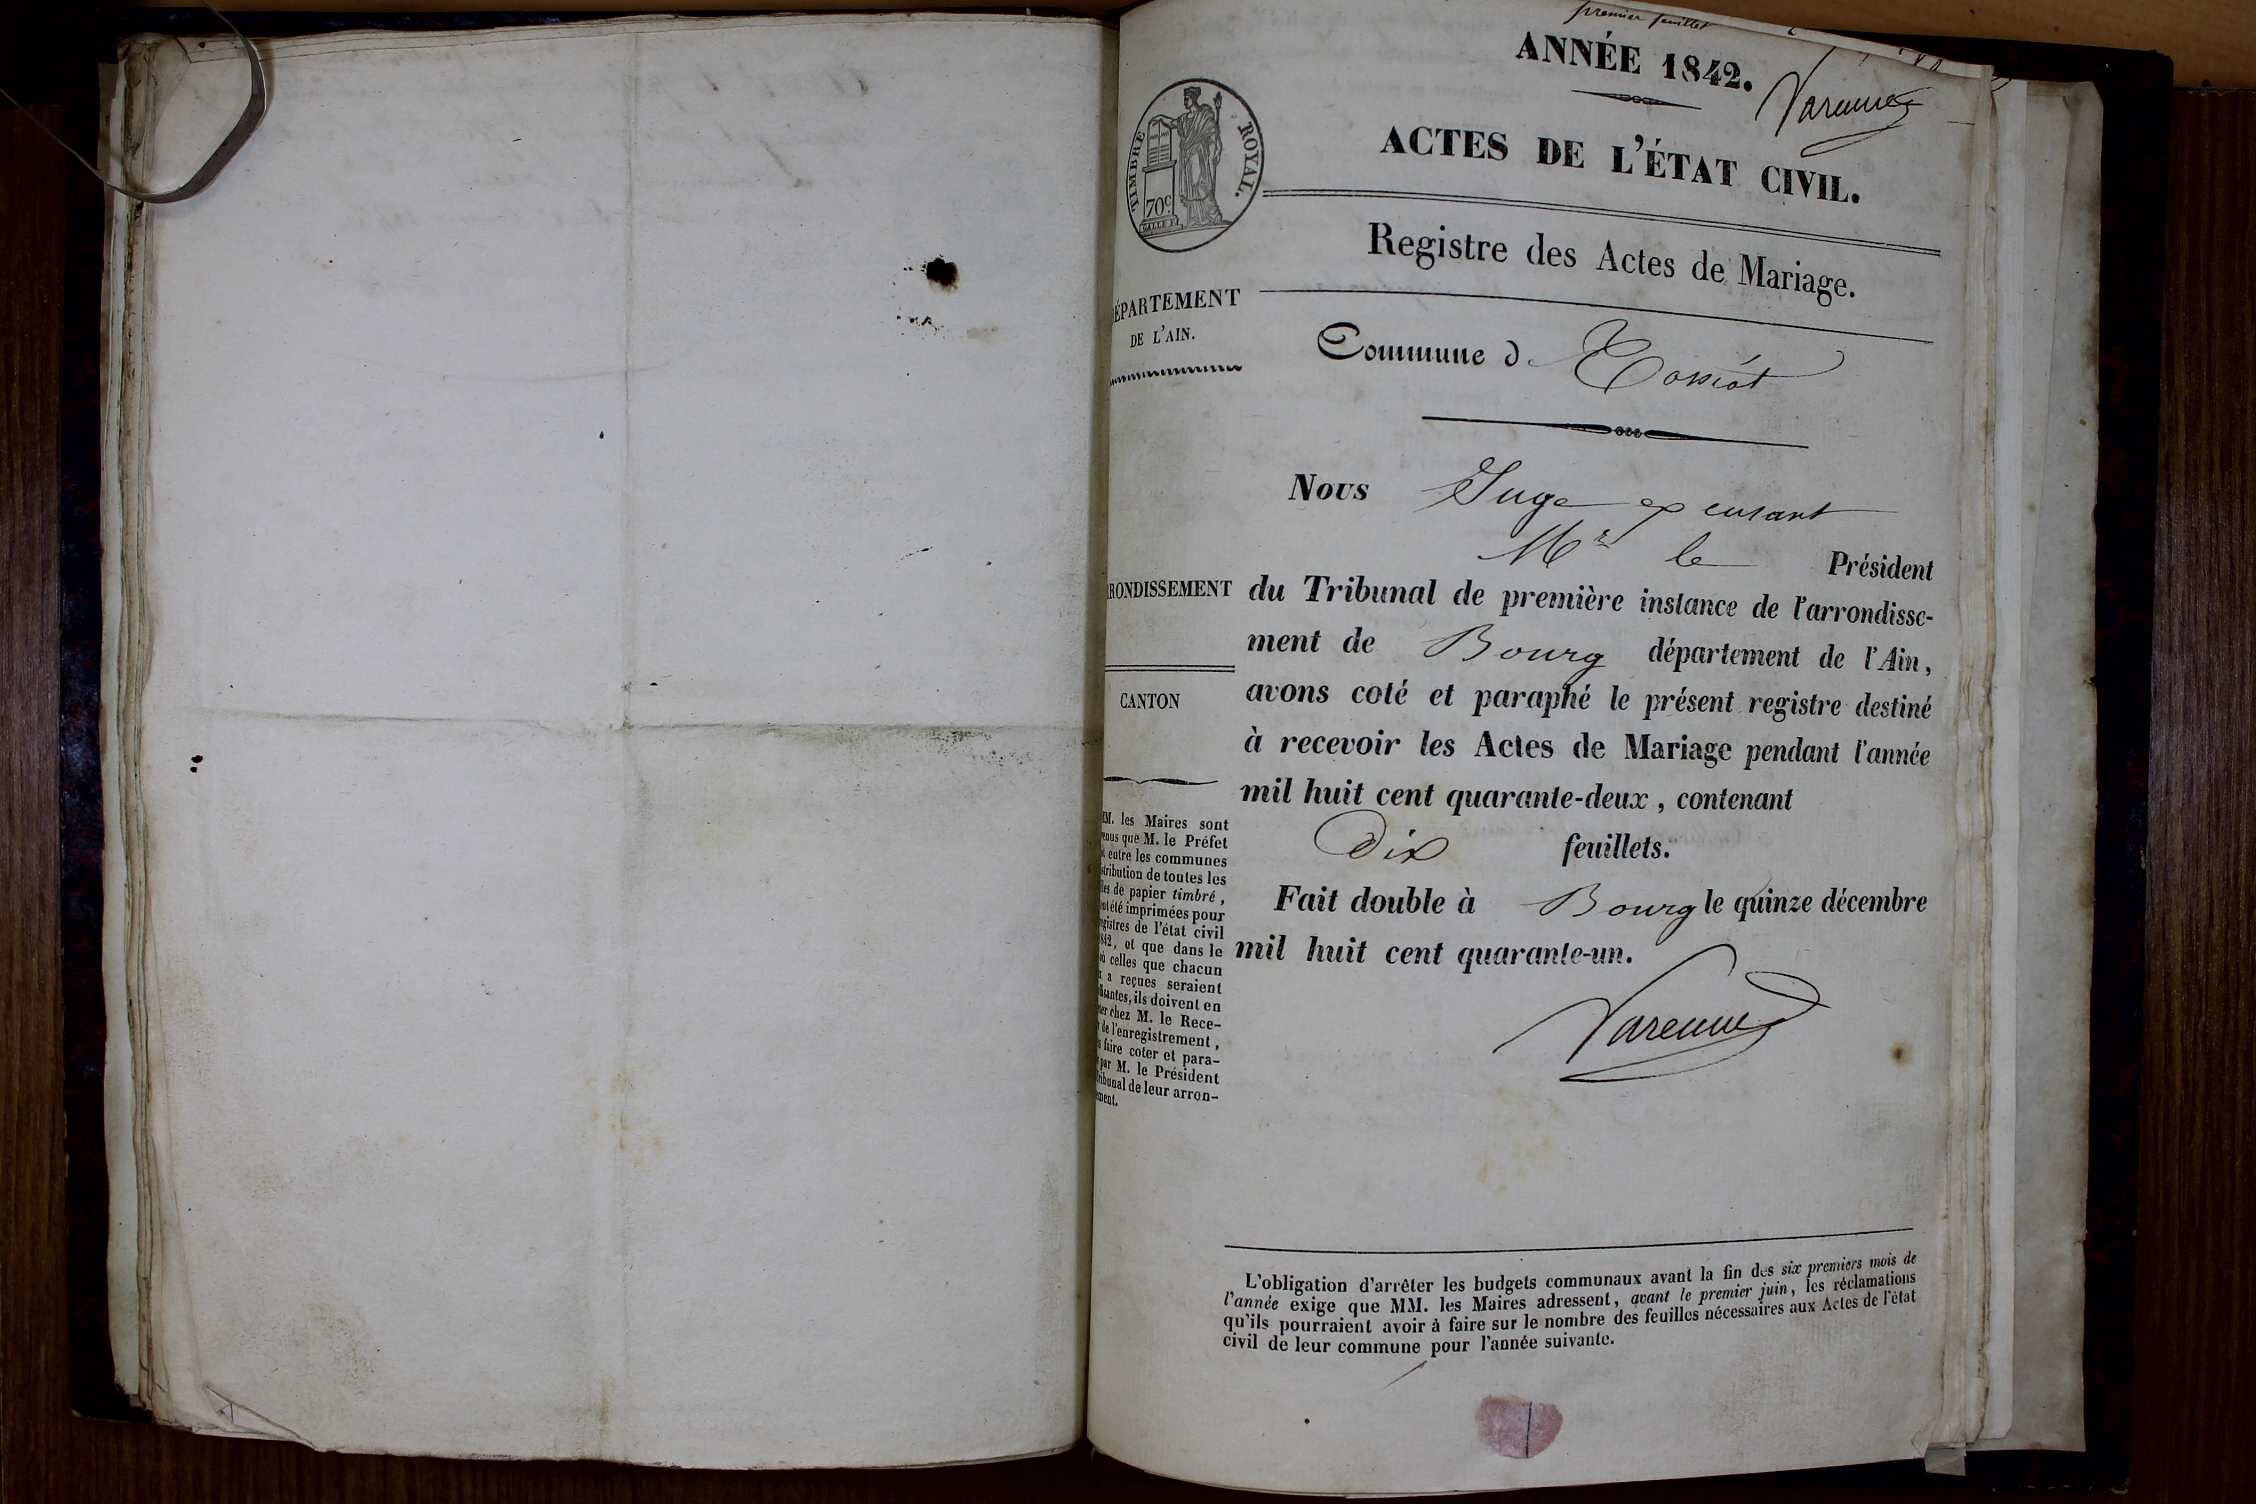 premier feuillet
ANNÉE 1842.
Varenne
TIMBRE ROYAL.
70c
ACTES DE L'ÉTAT CIVIL.
Registre des Actes de Mariage.
ÉPARTEMENT
DE L'AIN.
Commune d Tossiat
Nous Juge excusant
Mr le Président
RONDISSEMENT
du Tribunal de première instance de l'arrondisse-
ment de Bourg département de l'Ain,
CANTON
avons coté et paraphé le présent registre destiné
à recevoir les Actes de Mariage pendant l'année
mil huit cent quarante-deux, contenant
Dix feuillets.
Fait double à Bourg le quinze décembre
mil huit cent quarante-un.
Varenne
MM. les Maires sont
enus que M. le Préfet
entre les communes
stribution de toutes les
les de papier timbré,
nt été imprimées pour
egistres de l'état civil
842, et que dans le
où celles que chacun
x a reçues seraient
ffisantes, ils doivent en
ter chez M. le Rece-
r de l'enregistrement,
s faire coter et para-
par M. le Président
Tribunal de leur arron-
ement.
L'obligation d'arrêter les budgets communaux avant la fin des six premiers mois de
l'année exige que MM. les Maires adressent, avant le premier juin, les réclamations
qu'ils pourraient avoir à faire sur le nombre des feuilles nécessaires aux Actes de l'état
civil de leur commune pour l'année suivante.